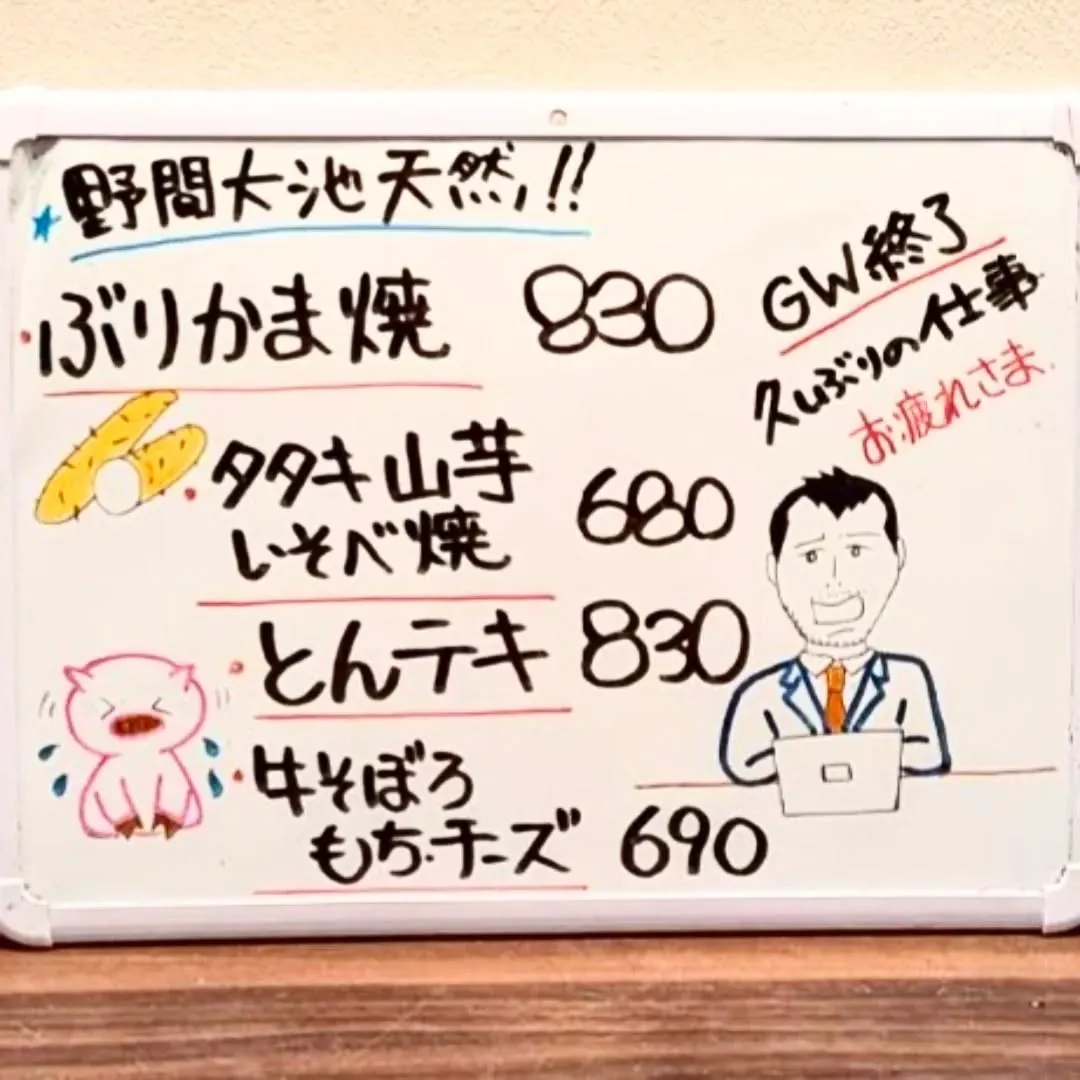 ★野間大池天然!!
・ぶりかま焼 830
・タタキ山芋
いそべ焼 680
・とんテキ 830
・牛そぼろ
もち・チーズ 690
GW終了
久しぶりの仕事
お疲れさま